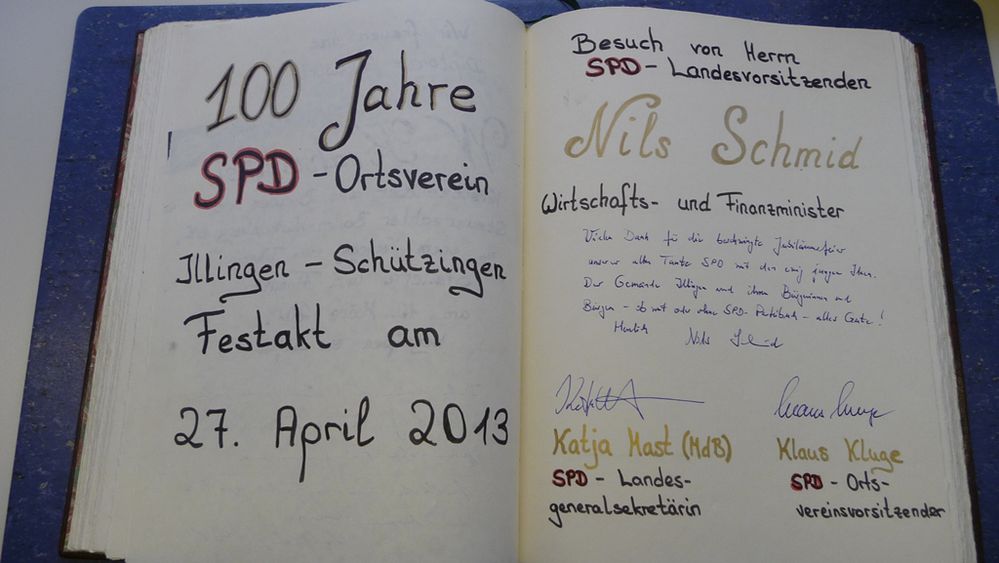 100 Jahre
SPD - Ortsverein
Illingen - Schützingen
Festakt am
27. April 2013
Besuch von Herrn
SPD - Landesvorsitzenden
Nils Schmid
Wirtschafts- und Finanzminister
Vielen Dank für die beschwingte Jubiläumsfeier
unserer alten Tante SPD mit den ewig jungen Ideen.
Der Gemeinde Illingen und ihren Bürgerinnen und
Bürgern - ob mit oder ohne SPD-Parteibuch - alles Gute!
Herzlich
Nils Schmid
Katja Mast (MdB)
Klaus Kluge
SPD - Landes-
generalsekretärin
SPD - Orts-
vereinsvorsitzender